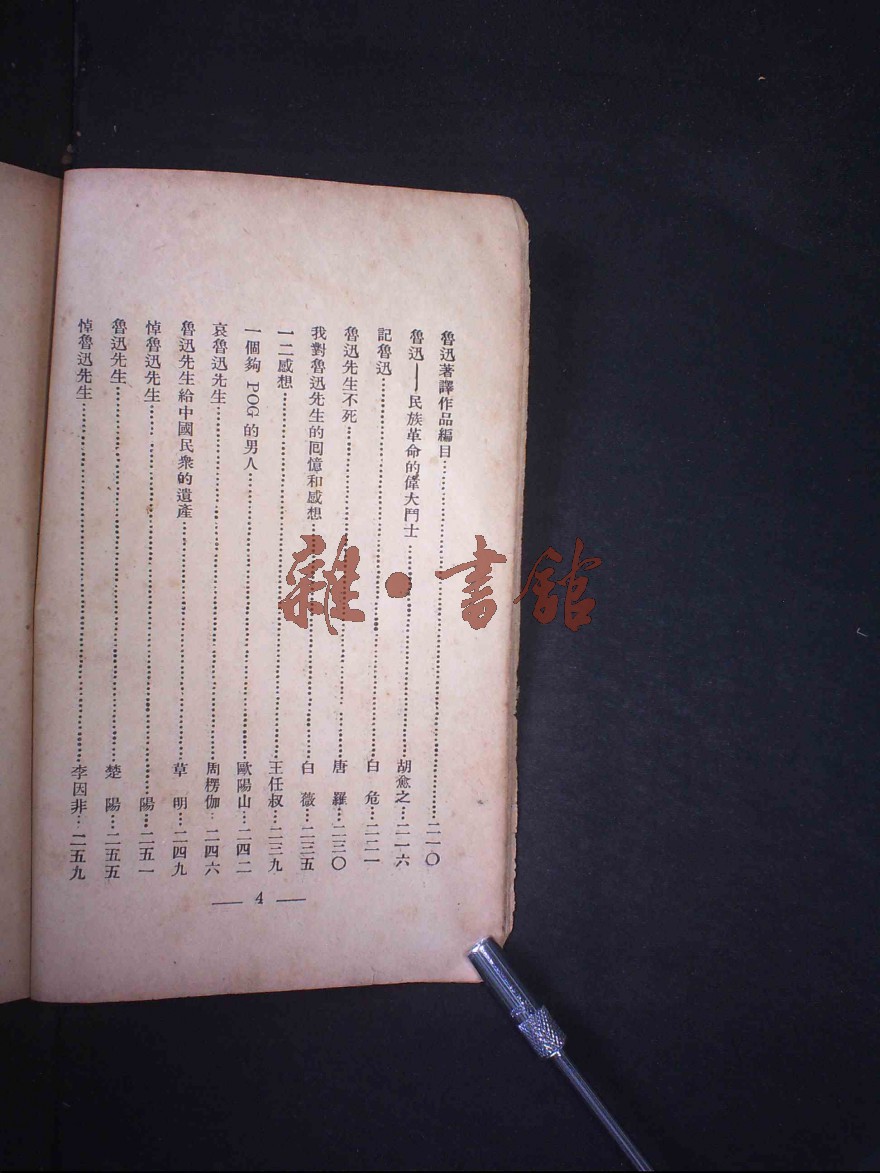 魯迅著譯作品編目……二一〇
魯迅——民族革命的偉大鬥士……胡愈之…二一六
記魯迅……白　危…二二一
魯迅先生不死……唐　羅…二三〇
我對魯迅先生的回憶和感想……白　薇…二三五
一二感想……王任叔…二三九
一個夠 POG 的男人……歐陽山…二四二
哀魯迅先生……周楞伽…二四六
魯迅先生給中國民衆的遺產……草　明…二四九
悼魯迅先生……陽…二五一
魯迅先生……楚　陽…二五五
悼魯迅先生……李因非…二五九
— 4 —
雜·書館